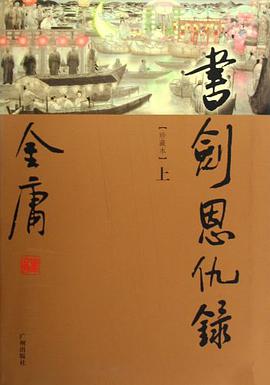 書劍恩仇錄
【珍藏本】上
金庸
广州出版社